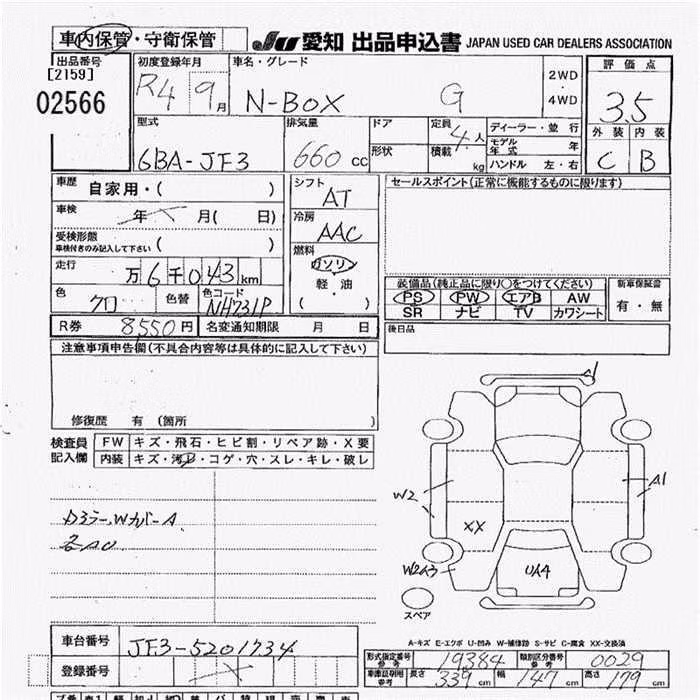 車内保管・守衛保管 JU 愛知 出品申込書 JAPAN USED CAR DEALERS ASSOCIATION
出品番号 初度登録年月 車名・グレード 評価点
[2159] R4 9月 N-BOX G 2WD
02566 ・ 3.5
4WD
型式 排気量 ドア 定員 4人 ディーラー・並行 外装 内装
6BA-JF3 660 cc 形状 積載 kg モデル年式 年 C B
ハンドル 左・右
車歴 自家用・( ) シフト AT セールスポイント(正常に機能するものに限ります)
車検 年 月( 日) 冷房 AAC
受検形態 ( )
車検付きのみ記入して下さい
燃料 ガソリン
走行 万6千043km 軽・油 装備品(純正品に限り○をつけてください) 新車保証書
色 クロ 色替 色コード NH731P ( ) PS PW エアB AW 有・無
SR ナビ TV カワシート
R券 8550円 名変通知期限 月 日 後日品
注意事項申告欄(不具合内容等は具体的に記入して下さい)
A1
修復歴 有 (箇所 )
検査員 FW キズ・飛石・ヒビ割・リペア跡・X要
記入欄 内装 キズ・汚レ・コゲ・穴・スレ・キレ・破レ
A1
W2
XX
各AU
UA4
スペア
A-キズ E-エクボ U-凹み W-補修跡 S-サビ C-腐食 XX-交換済
車台番号 JF3-5201734
型式指定番号 参考 19384 類別区分番号 参考 0029
登録番号
車庫証明用 参考 長さ 339cm 幅 147cm 高さ 179cm